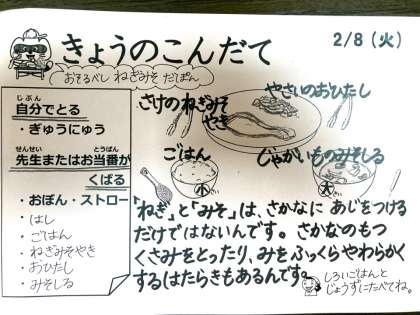 きょうのこんだて
2/8（火）
おそるべし ねぎみそ だぽん
じぶん
自分でとる
・ぎゅうにゅう
せんせい とうばん
先生またはお当番が
くばる
・おぼん・ストロー
・はし
・ごはん
・ねぎみそやき
・おひたし
・みそしる
さけのねぎみそ
やき
やさいのおひたし
ごはん
小
じゃがいものみそしる
大
「ねぎ」と「みそ」は、さかなに あじをつける
だけではないんです。さかなのもつ
くさみをとったり、みをふっくらやわらかく
するはたらきもあるんです。
しろいごはんと
じょうずにたべてね。